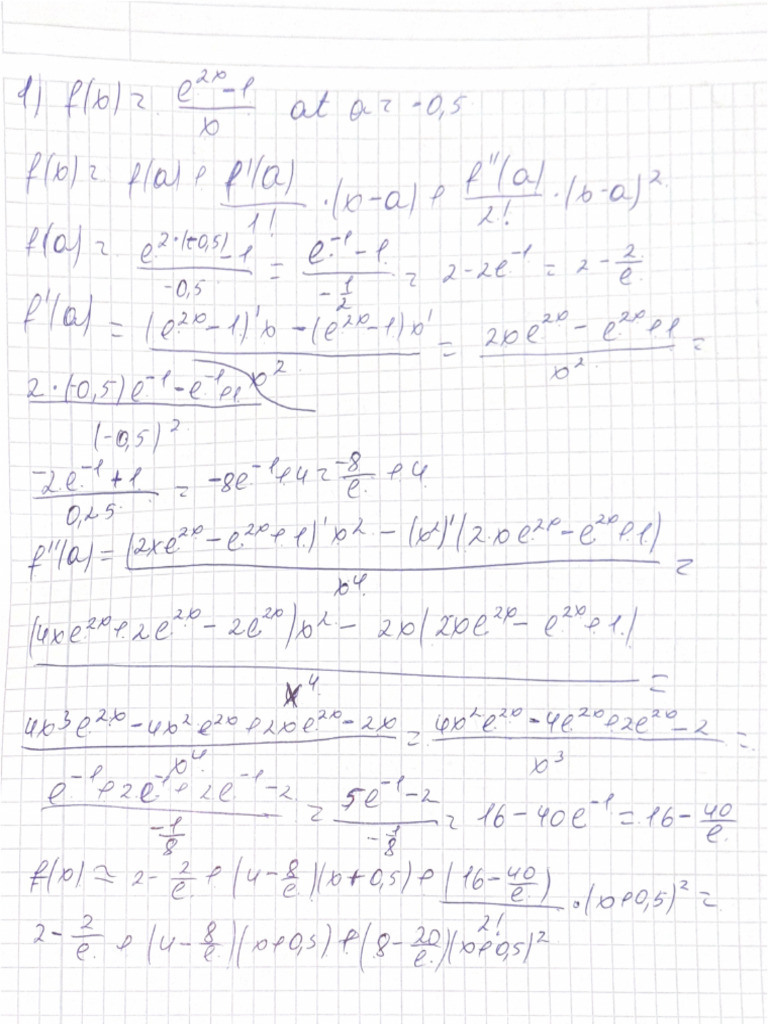 1) f(x) = (e^{2x} - 1)/x at a = -0,5
f(x) = f(a) + f'(a)/1! · (x-a) + f''(a)/2! · (x-a)^2
f(a) = (e^{2·(-0,5)} - 1)/(-0,5) = (e^{-1} - 1)/(-1/2) = 2 - 2e^{-1} = 2 - 2/e
f'(a) = ((e^{2x} - 1)'x - (e^{2x} - 1)x')/x^2 = (2xe^{2x} - e^{2x} + 1)/x^2 =
(2·(-0,5)e^{-1} - e^{-1} + 1)/(-0,5)^2
(-2e^{-1} + 1)/0,25 = -8e^{-1} + 4 = -8/e + 4
f''(a) = ((2xe^{2x} - e^{2x} + 1)'x^2 - (x^2)'(2xe^{2x} - e^{2x} + 1))/x^4 =
((4xe^{2x} + 2e^{2x} - 2e^{2x})x^2 - 2x(2xe^{2x} - e^{2x} + 1))/x^4 =
(4x^3e^{2x} - 4x^2e^{2x} + 2xe^{2x} - 2x)/x^4 = (4x^2e^{2x} - 4e^{2x} + 2e^{2x} - 2)/x^3 =
(e^{-1} + 2e^{-1} + 2e^{-1} - 2)/(-1/8) = (5e^{-1} - 2)/(-1/8) = 16 - 40e^{-1} = 16 - 40/e
f(x) ≈ 2 - 2/e + (4 - 8/e)(x + 0,5) + (16 - 40/e)/2! · (x + 0,5)^2 =
2 - 2/e + (4 - 8/e)(x + 0,5) + (8 - 20/e)(x + 0,5)^2